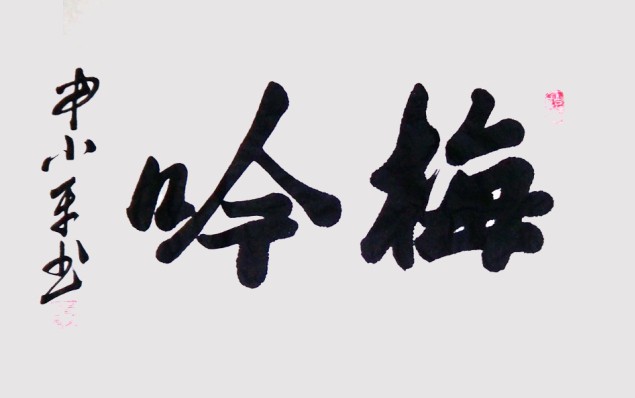 梅吟
申小平书